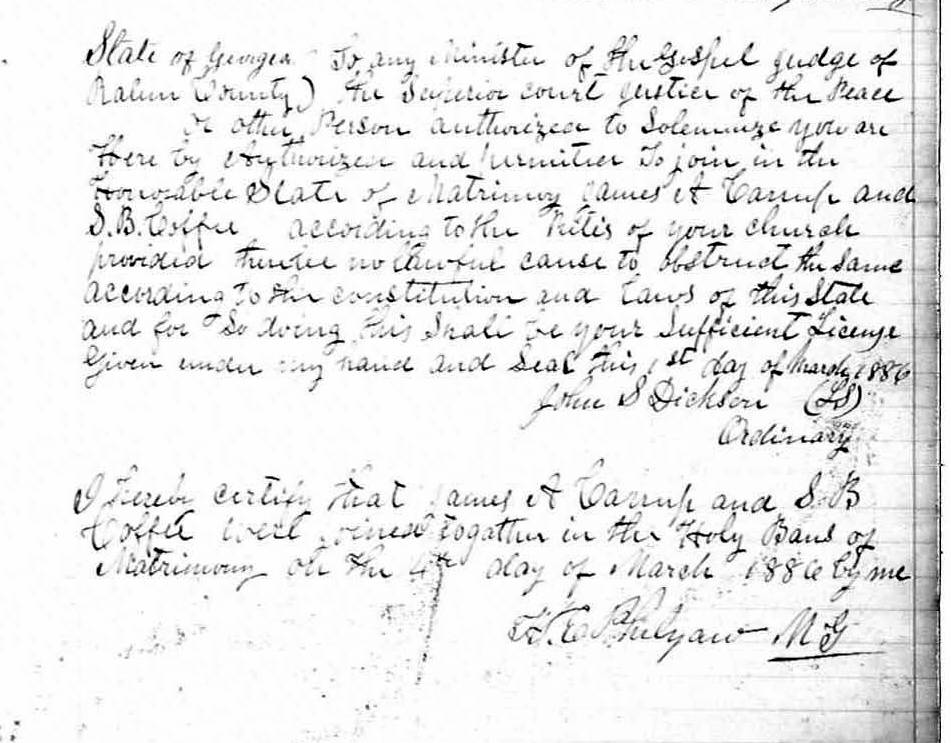 State of Georgia To any Minister of the Gospel Judge of
Rabun County) the Superior court Justice of the Peace
or other Person authorized to Solemnize you are
Here by Authorized and permitted To join in the
Honorable State of Matrimoy James A and
S. B. Coffee according to the Rites of your church
provided no lawful cause to obstruct the same
according to the constitution and Laws of this State
and for So doing this Shall be your Sufficient License
Given under my hand and Seal this 1st day of March 1886
John S Dickson (LS)
Ordinary
I hereby certify that James A and S. B
Coffee were joined togather in the Holy Bans of
Matrimony on the 4th day of March 1886 by me
Philyaw M G